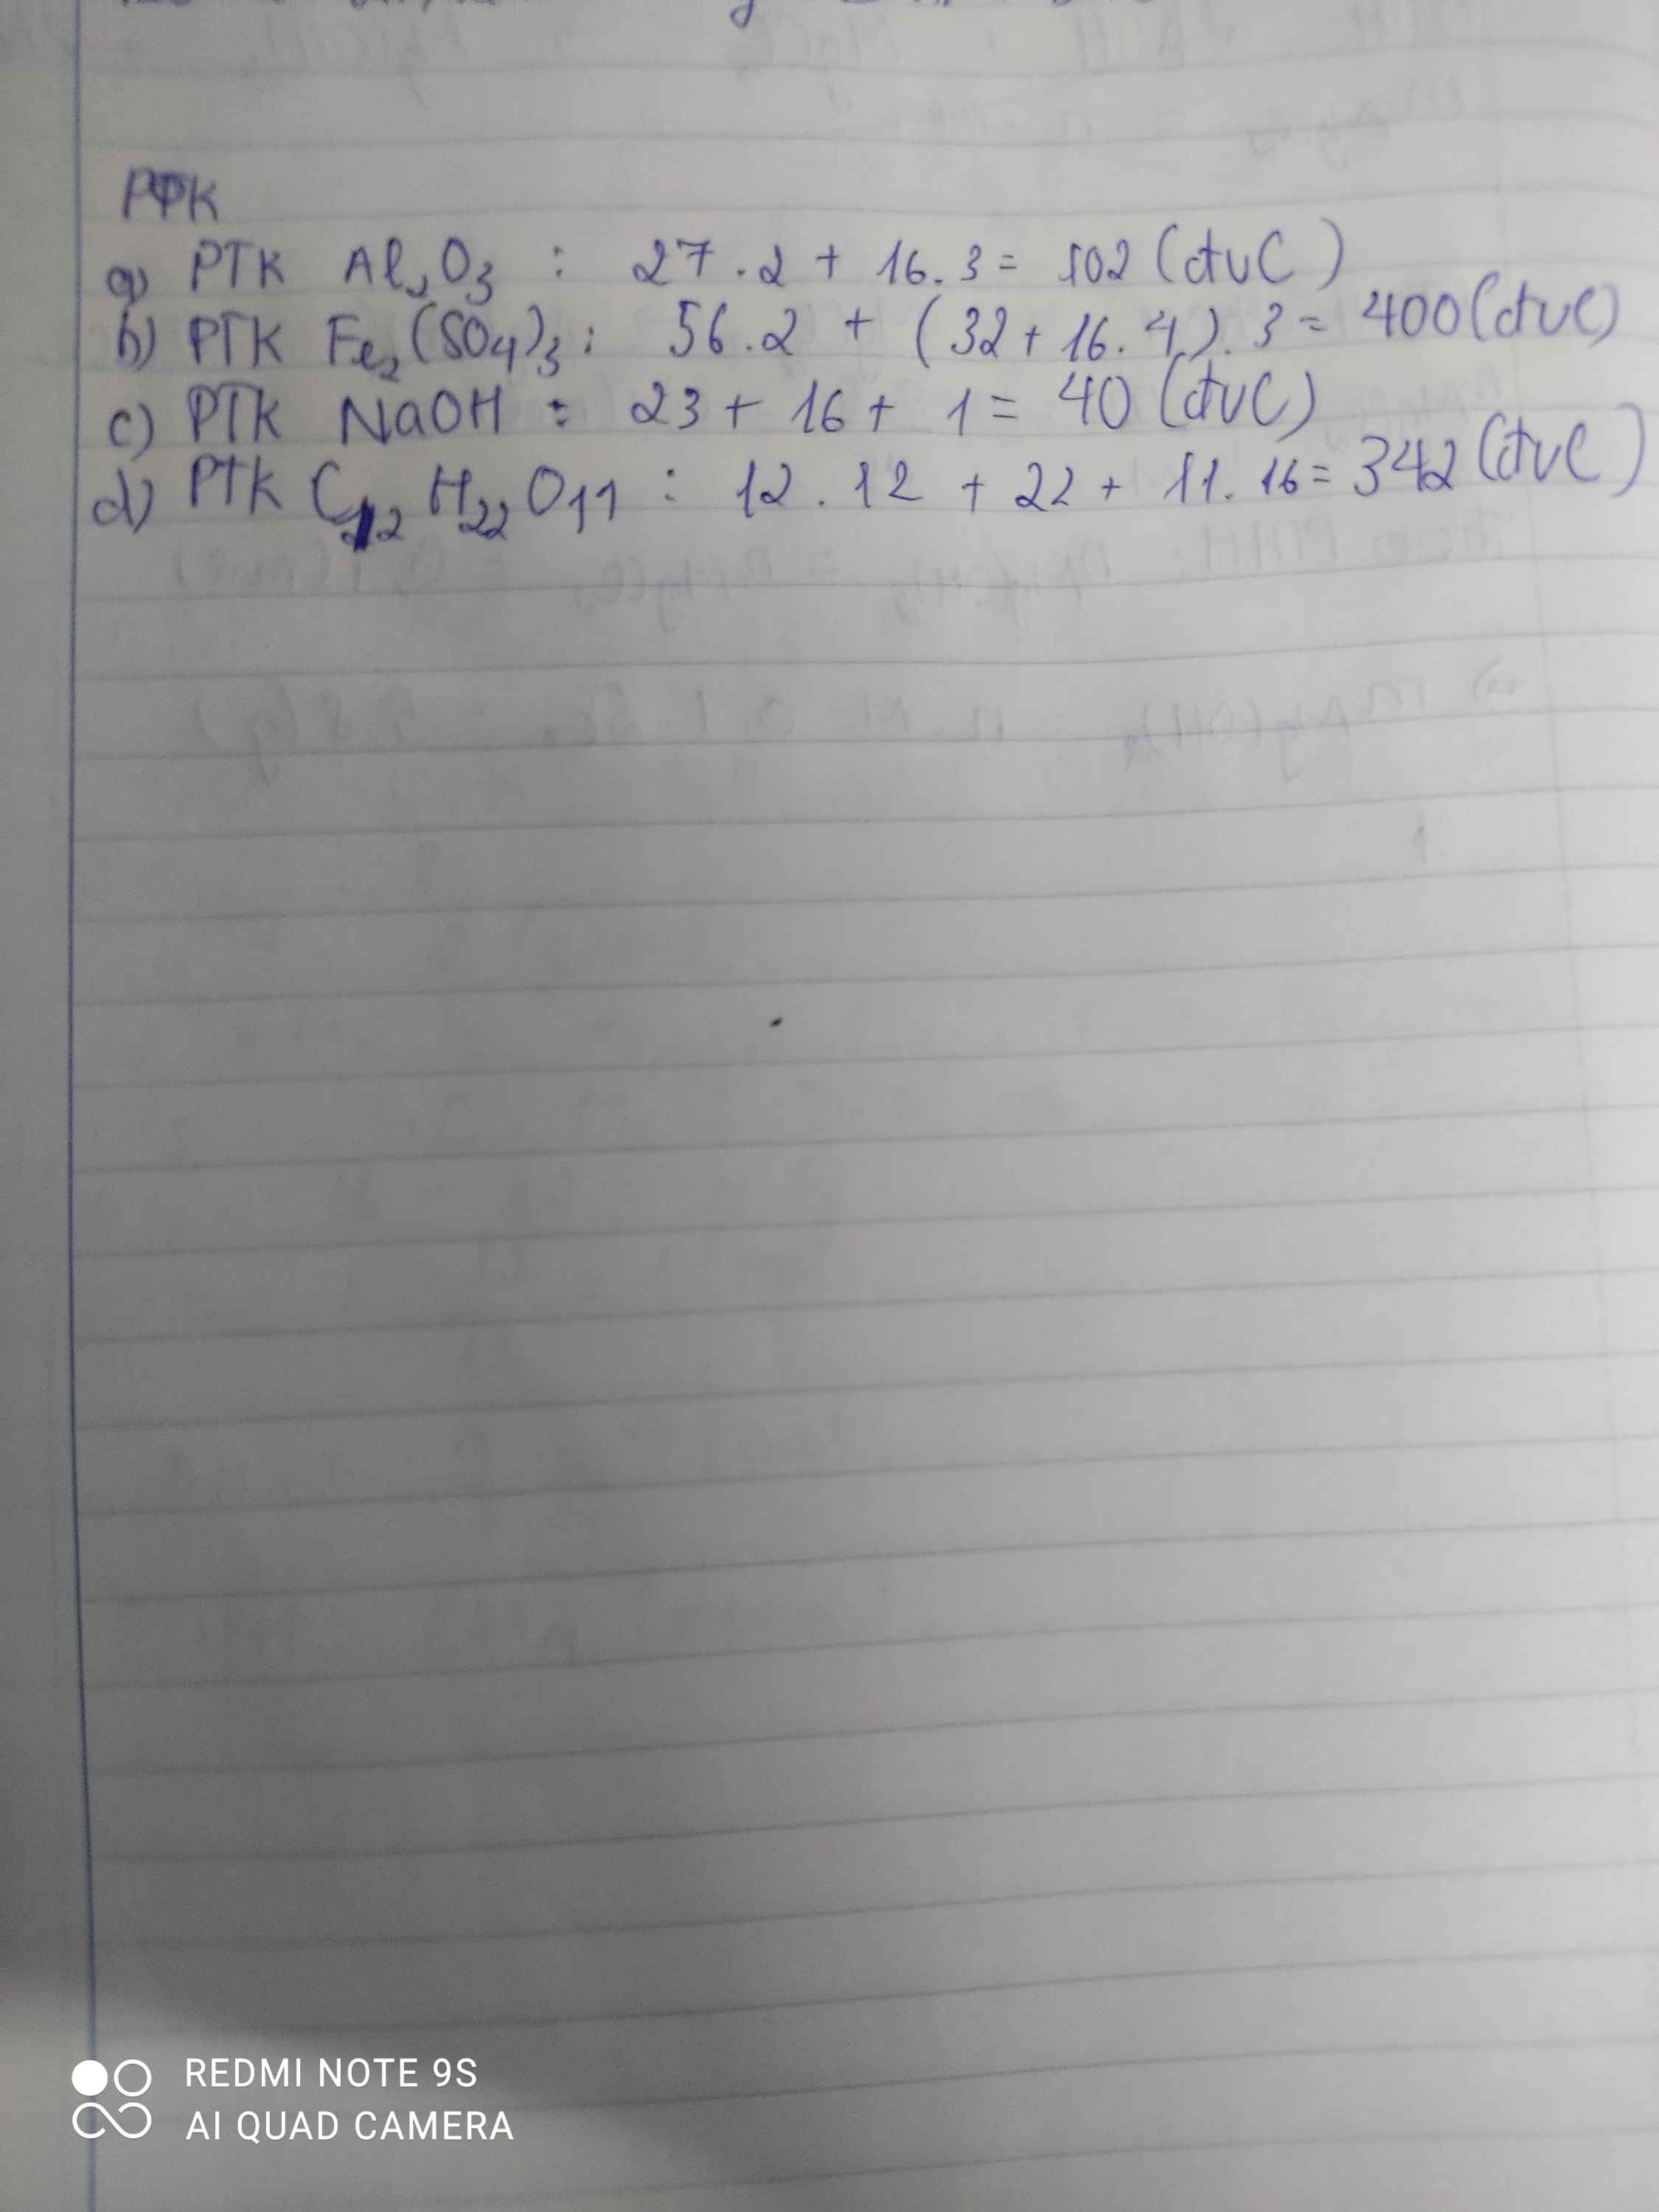 PTK
a) PTK Al₂O₃ : 27.2 + 16.3 = 102 (đvC)
b) PTK Fe₂(SO₄)₃ : 56.2 + (32 + 16.4).3 = 400 (đvC)
c) PTK NaOH : 23 + 16 + 1 = 40 (đvC)
d) PTK C₁₂H₂₂O₁₁ : 12.12 + 22 + 11.16 = 342 (đvC)
REDMI NOTE 9S
AI QUAD CAMERA